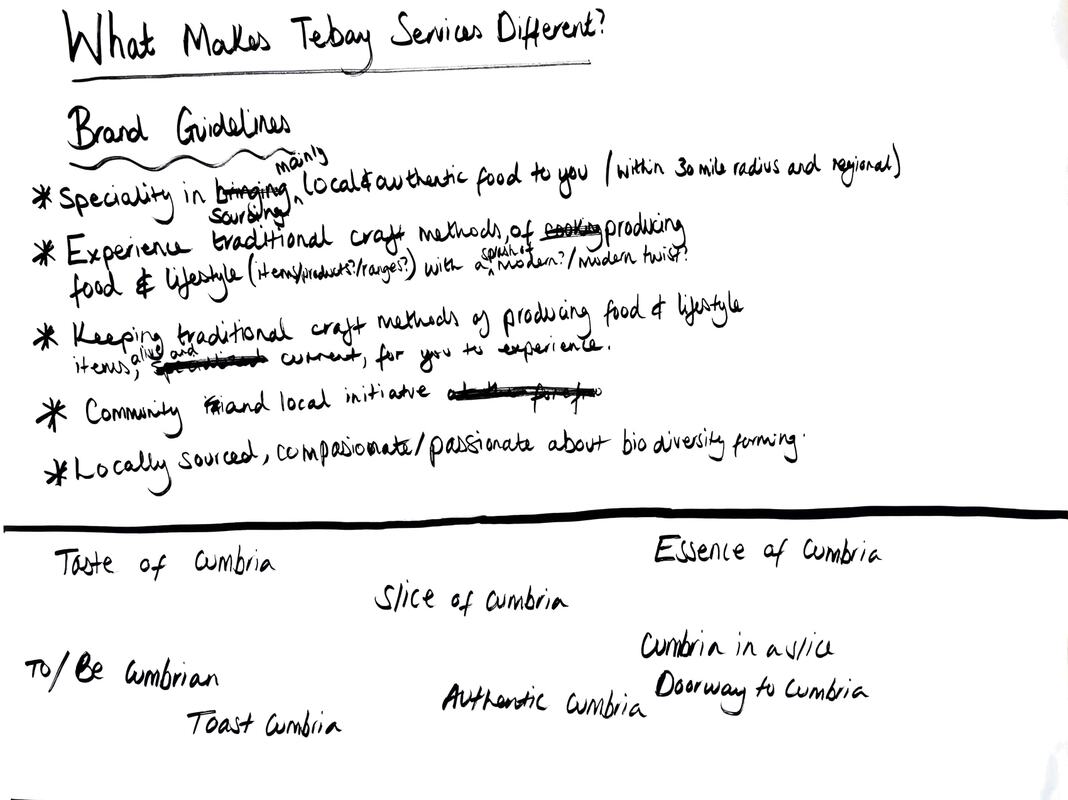 What Makes Tebay Services Different?
Brand Guidelines
mainly
* Speciality in bringing local & authentic food to you (within 30 mile radius and regional)
sourcing
* Experience traditional craft methods, of cooking producing
splash of
food & lifestyle (items/products?/ranges?) with a modern?/modern twist?
* Keeping traditional craft methods of producing food & lifestyle
alive and
items, current, for you to experience.
* Community and local initiative
* Locally sourced, compasionate/passionate about bio diversity farming.
Taste of Cumbria
Essence of Cumbria
Slice of Cumbria
Cumbria in a slice
To/Be Cumbrian
Doorway to Cumbria
Authentic Cumbria
Toast Cumbria